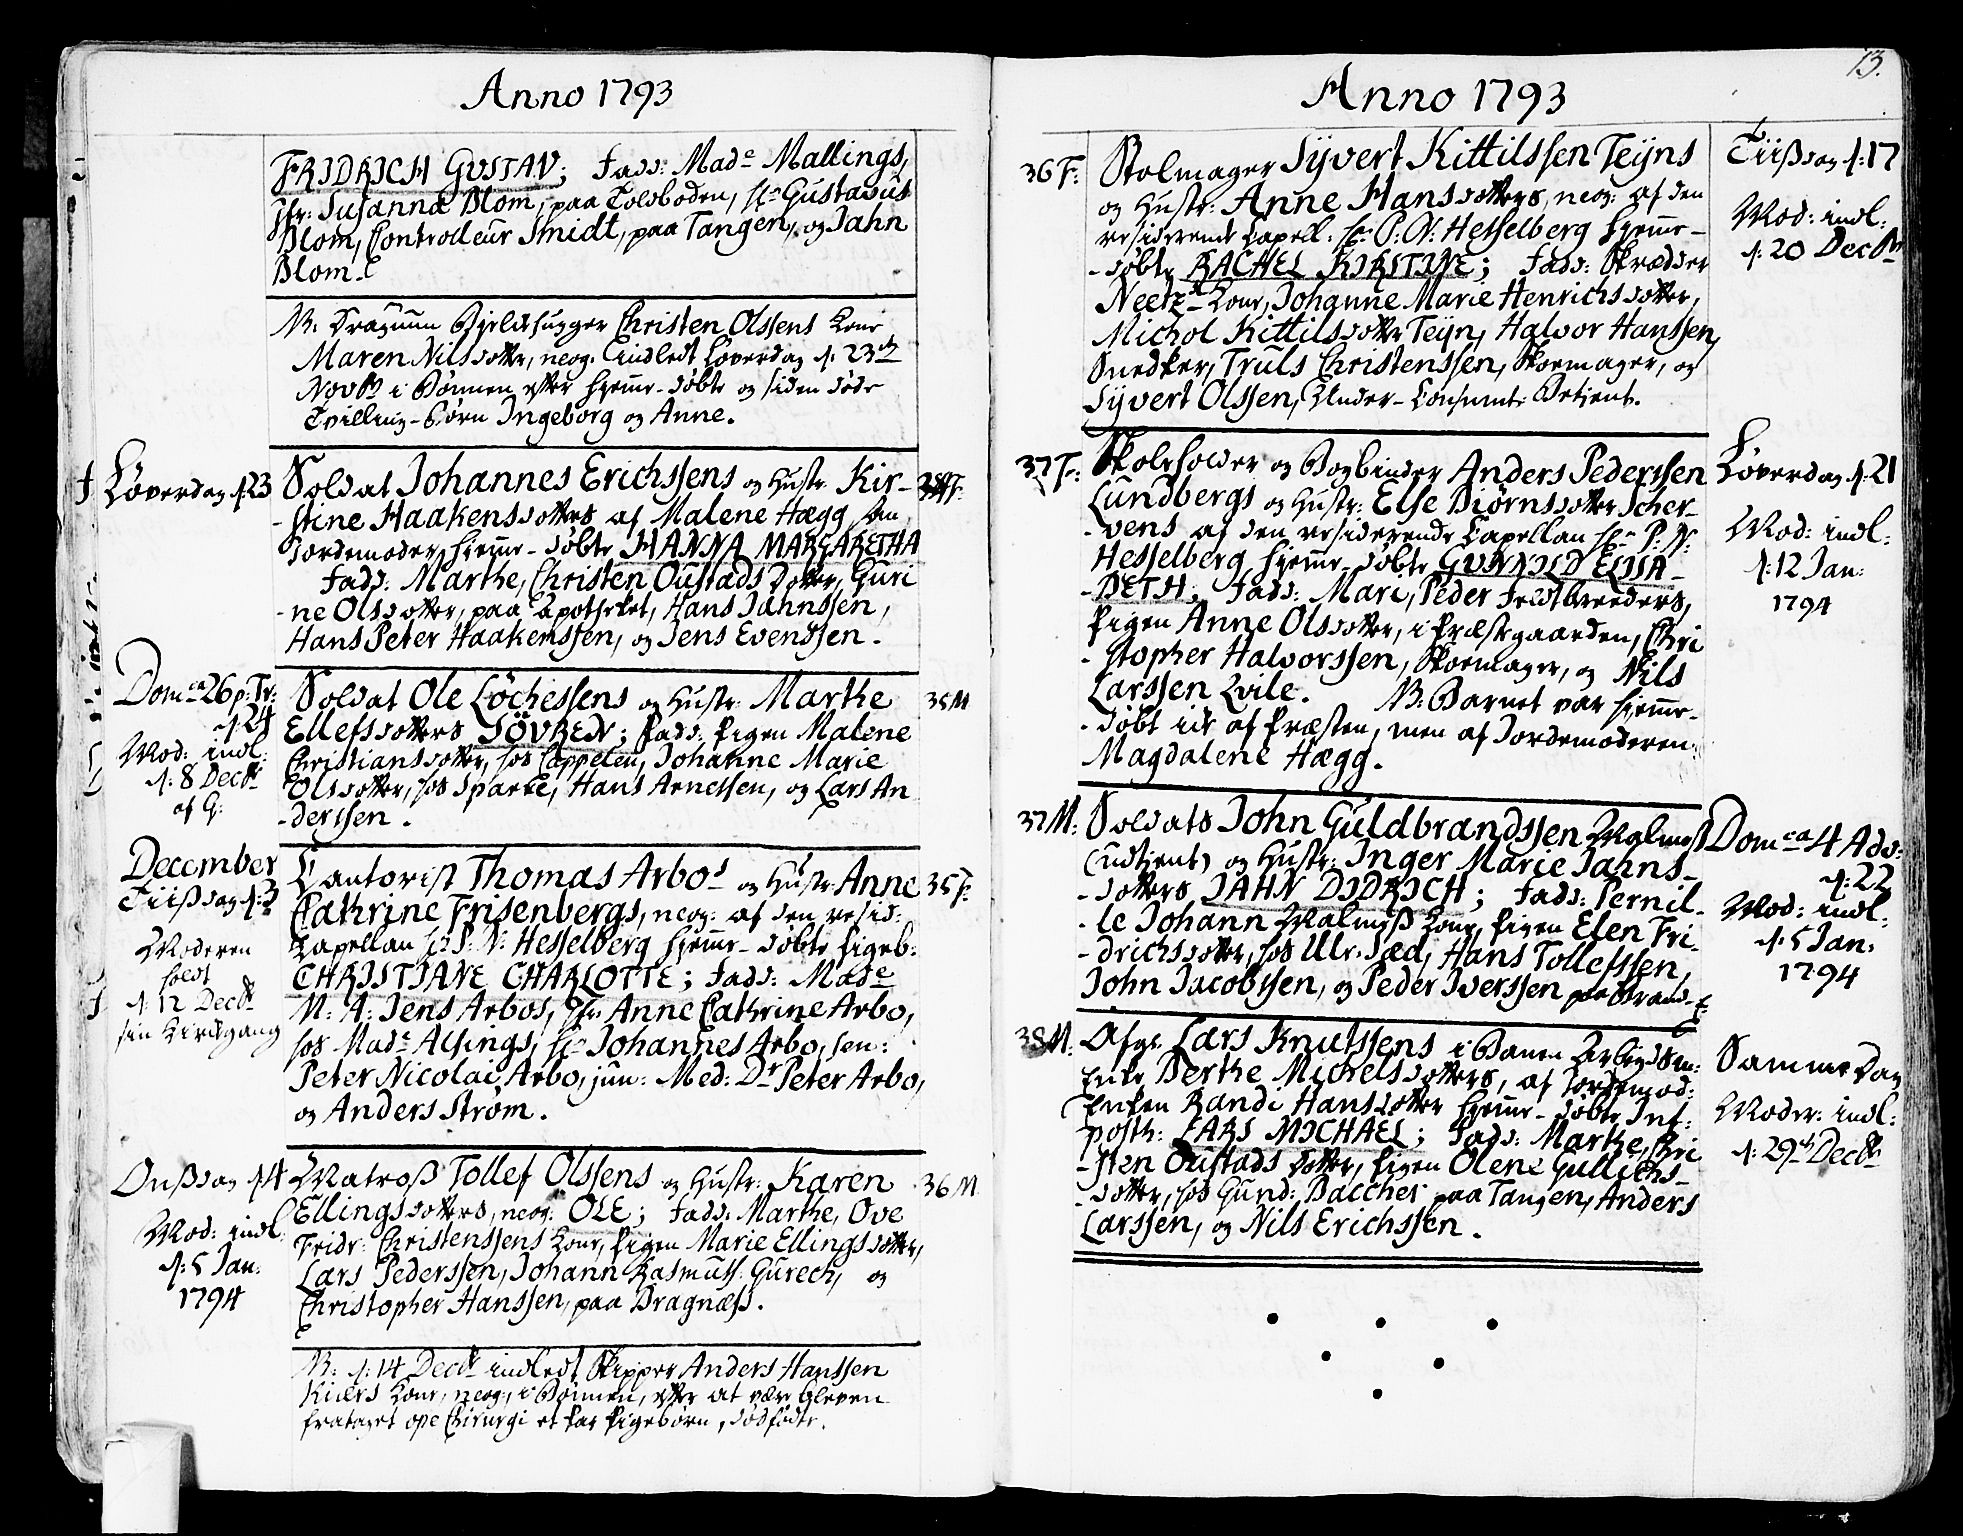 Anno 1793
FRIDRICH GUSTAV; Fadd: Mad.e Mallings,
Jfr: Susanna Blom, paa Tolboden, Hr. Gustavus
Blom, Controlleur Smidt, paa Tangen, og Jahn
Blom.
NB. Dragnum Bielkhugger Christen Olssens Kone
Maren Nilsdotter, neog. indledt Løverdag d: 23de
Novbr i Bønnen efter hjemme-døbte og siden døde
Tvilling-Børn Ingeborg og Anne.
Løverdag d: 23
Soldat Johannes Erichssens og Hustr: Kir-
-stine Haakensdotters af Malene Hægg
Jordemoder, hjemme-døbte HANNA MARGARETHA
Fadd: Marthe, Christen Oustads Dotter, Guri
-ne Olsdotter, paa Apotheket, Hans Jahnssen,
Hans Peter Haakenssen, og Jens Evenssen.
34 F:
Dom.ca 26 p: Tr:
d: 24
Mod: indl:
d: 8 Decbr
af G:
Soldat Ole Lochessens og Hustr: Marthe
Ellefsdotters SÖVREN; Fadd: Pigen Malene
Christiansdotter, hos Cappelen, Johanne Marie
Olsdotter, hos Sparre, Hans Arnessen, og Lars An
-derssen.
35 M
December
Tiißdag d: 3
Moderen
holdt
d: 12 Decbr
sin Kirkgang
Cantorist Thomas Arbos og Hustr: Anne
Cathrine Frisenbergs, neog: af den resid:
Capellan Hr: P: N: Hesselberg hjemme-døbte Pigeb:
CHRISTIANE CHARLOTTE; Fadd: Mad.e
M: A: Jens Arbos, Jfr: Anne Cathrine Arbo,
hos Mad.e Alsings, Hr. Johannes Arbo, sen:
Peter Nicolai Arbo, jun: Med: Dr Peter Arbo,
og Anders Strøm.
35 F:
Onßdag d: 4
Mod: indl.
d: 5 Jan:
1794
Matroß Tollef Olssens og Hustr: Karen
Ellingsdotters, neog: OLE; Fadd: Marthe, Ove
Fridr: Christenssens Kone, Pigen Marie Ellingsdotter,
Lars Pederssen, Johann Rasmuss: Gurech, og
Christopher Hanssen, paa Dragnæss.
36 M
NB: d: 14 Decbr indledt Skipper Anders Hanssen
Kiærs Kone, neog:, i Bønnen, efter at være bleven
frataget ope Chirurgi et par Pigebørn, dødfødte.
13.
Anno 1793
36 F:
Stolmager Syvert Kittilssen Teyns
og Hustr: Anne Hansdotters, neog: af den
residerende Capell: Hr. P: N: Hesselberg hjemme-
-døbte RACHEL KIRSTINE; Fadd: Skrædder
Neetz Kone, Johanne Marie Henrichsdotter,
Michol Kittilsdotter Teyn, Halvor Hanssen,
Snedker, Truls Christenssen, Skoemager, og
Syvert Olssen, Under-Consumt: Betient.
Tiißdag d: 17
Mod: indl:
d: 20 Decbr
37 F:
Skoleholder og Bogbinder Anders Pederssen
Lundbergs og Hustr: Else Biørnsdotter Scher-
-vens af den residerende Capellan Hr. P: N:
Hesselberg hjemme-døbte GUNNILD ELISA-
-BETH; Fadd: Mari, Peder Feldtbereders,
Pigen Anne Olsdotter, i Præstgaarden, Chri
-stopher Halvorssen, Skoemager, og Nils
Larssen Qvile. NB: Barnet var hjemme-
-døbt ide af Præsten, men af Jordemoderen
Magdalene Hægg.
Løverdag d: 21
Mod: indl:
d: 12 Jan:
1794
37 M:
Soldats John Guldbrandssen Malmøß
(udtient) og Hustr: Inger Marie Jahns-
-dotters JAHN DIDRICH; Fadd: Pernil-
-le Johann Malmøß Kone, Pigen Elen Fri-
-drichsdotter, hos Ulr. Sæd, Hans Tollefssen,
John Jacobssen, og Peder Iverssen paa Strand-
Dom.ca 4 Adv:
d: 22
Mod: indl:
d: 5 Jan.
1794
38 M:
Afg: Lars Knutssens i Banen Arbejdsm:
Enke Berthe Michelsdotters, af Jordemod:
Enken Randi Hansdotter hjemme-døbte Inf:
posth: LARS MICHAEL; Fadd: Marthe, Kri
-sten Oustads Dotter, Pigen Olene Gullichs-
-dotter, hos Gund: Bacches paa Tangen, Anders
Larssen, og Nils Erichssen.
Samme Dag
Moder: indl:
d: 29de Decbr